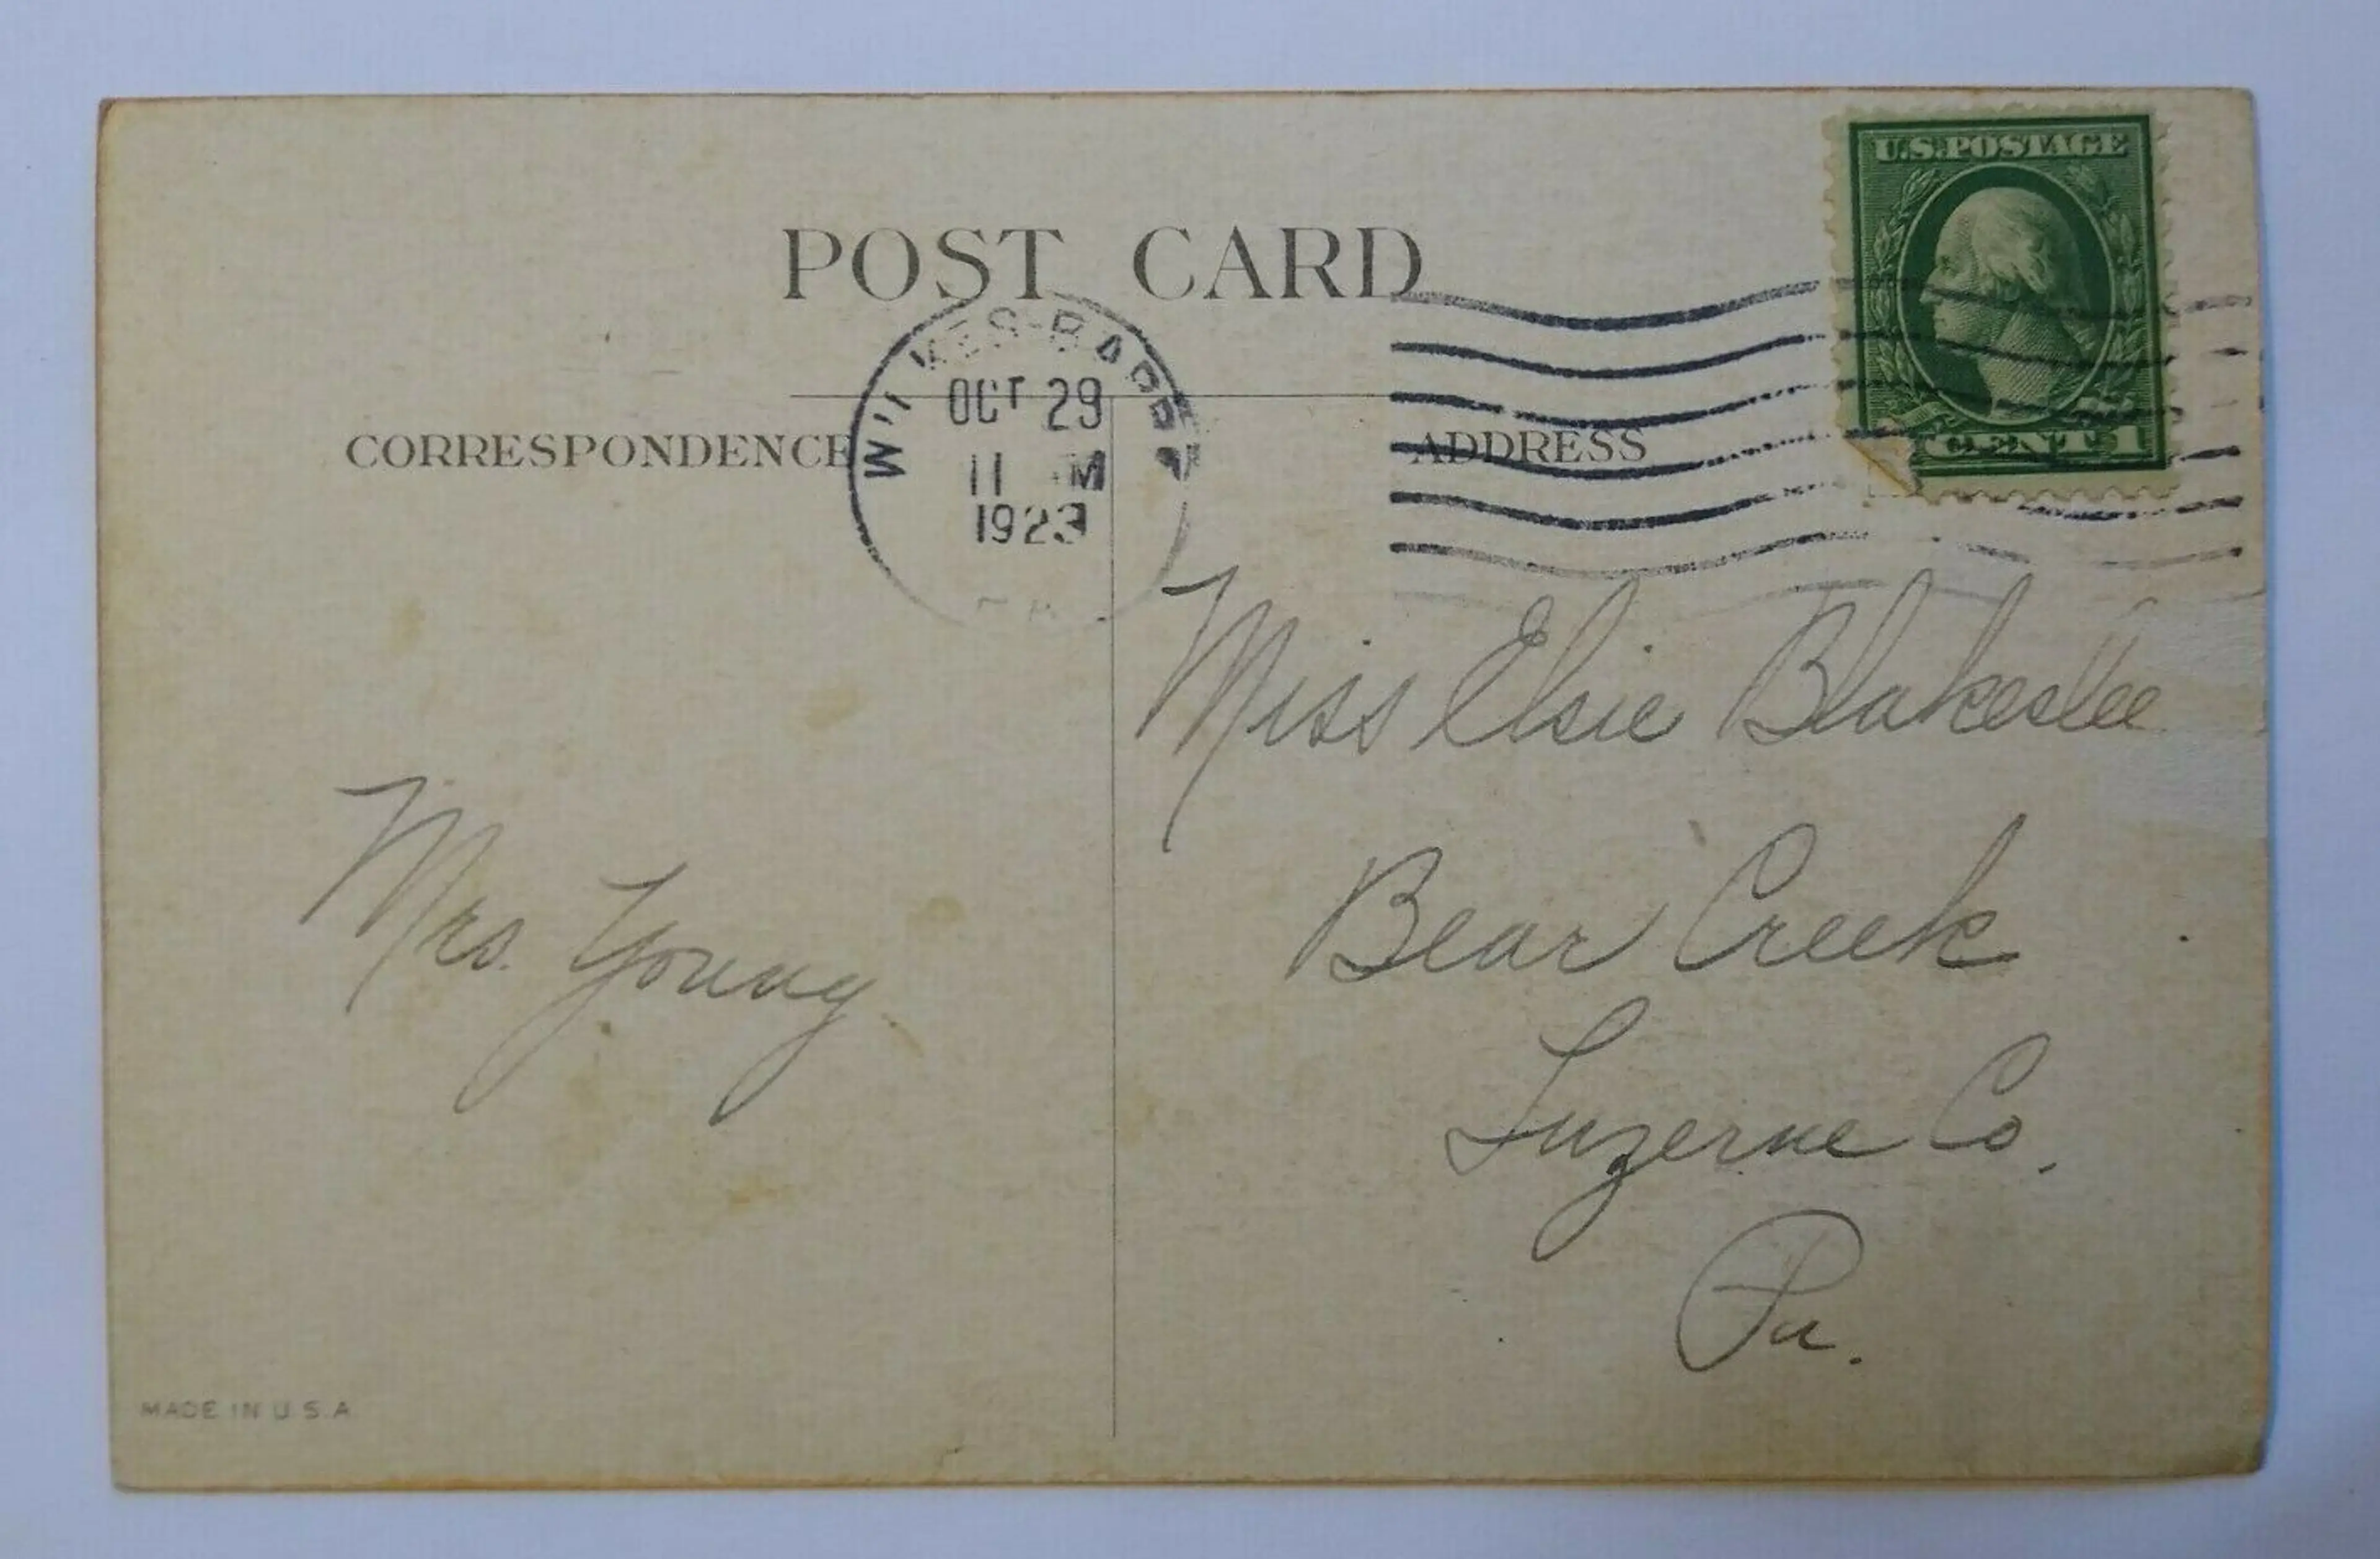 U.S. POSTAGE
CENT 1
POST CARD
WILKES-BARRE
OCT 29
11 M
1923
PA.
CORRESPONDENCE
ADDRESS
Miss Elsie Blakeslee
Bear Creek
Luzerne Co.
Pa.
Mrs. Young
MADE IN U.S.A